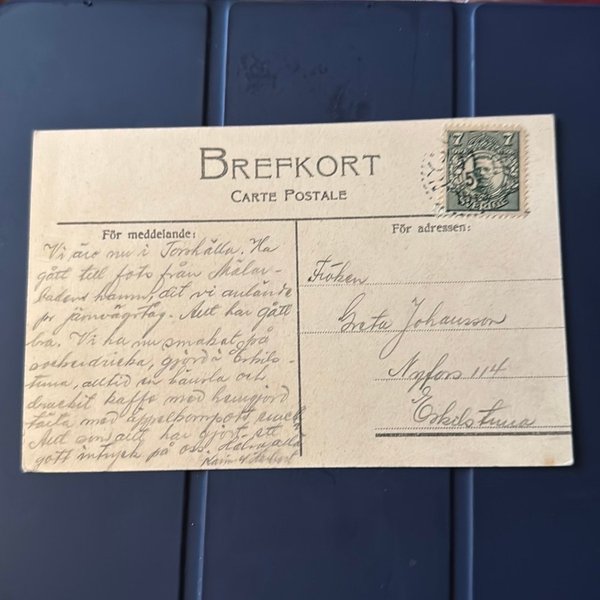 7 7
BREFKORT
CARTE POSTALE
För meddelande:
Vi äro nu i Torshälla. Ha
gått till fots från Mälar-
badens hamn, dit vi anlände
pr järnvägståg. Allt har gått
bra. Vi ha nu smakat på
sockerdricka, gjord i Eskils-
tuna, alltid en låsnla och
druckit kaffe med hemgjord
tårta med äppelkompott
Allt som allt har gjort ett
gott intryck på oss.
Karin
För adressen:
Fröken
Greta Johansson
Nyfors 114
Eskilstuna